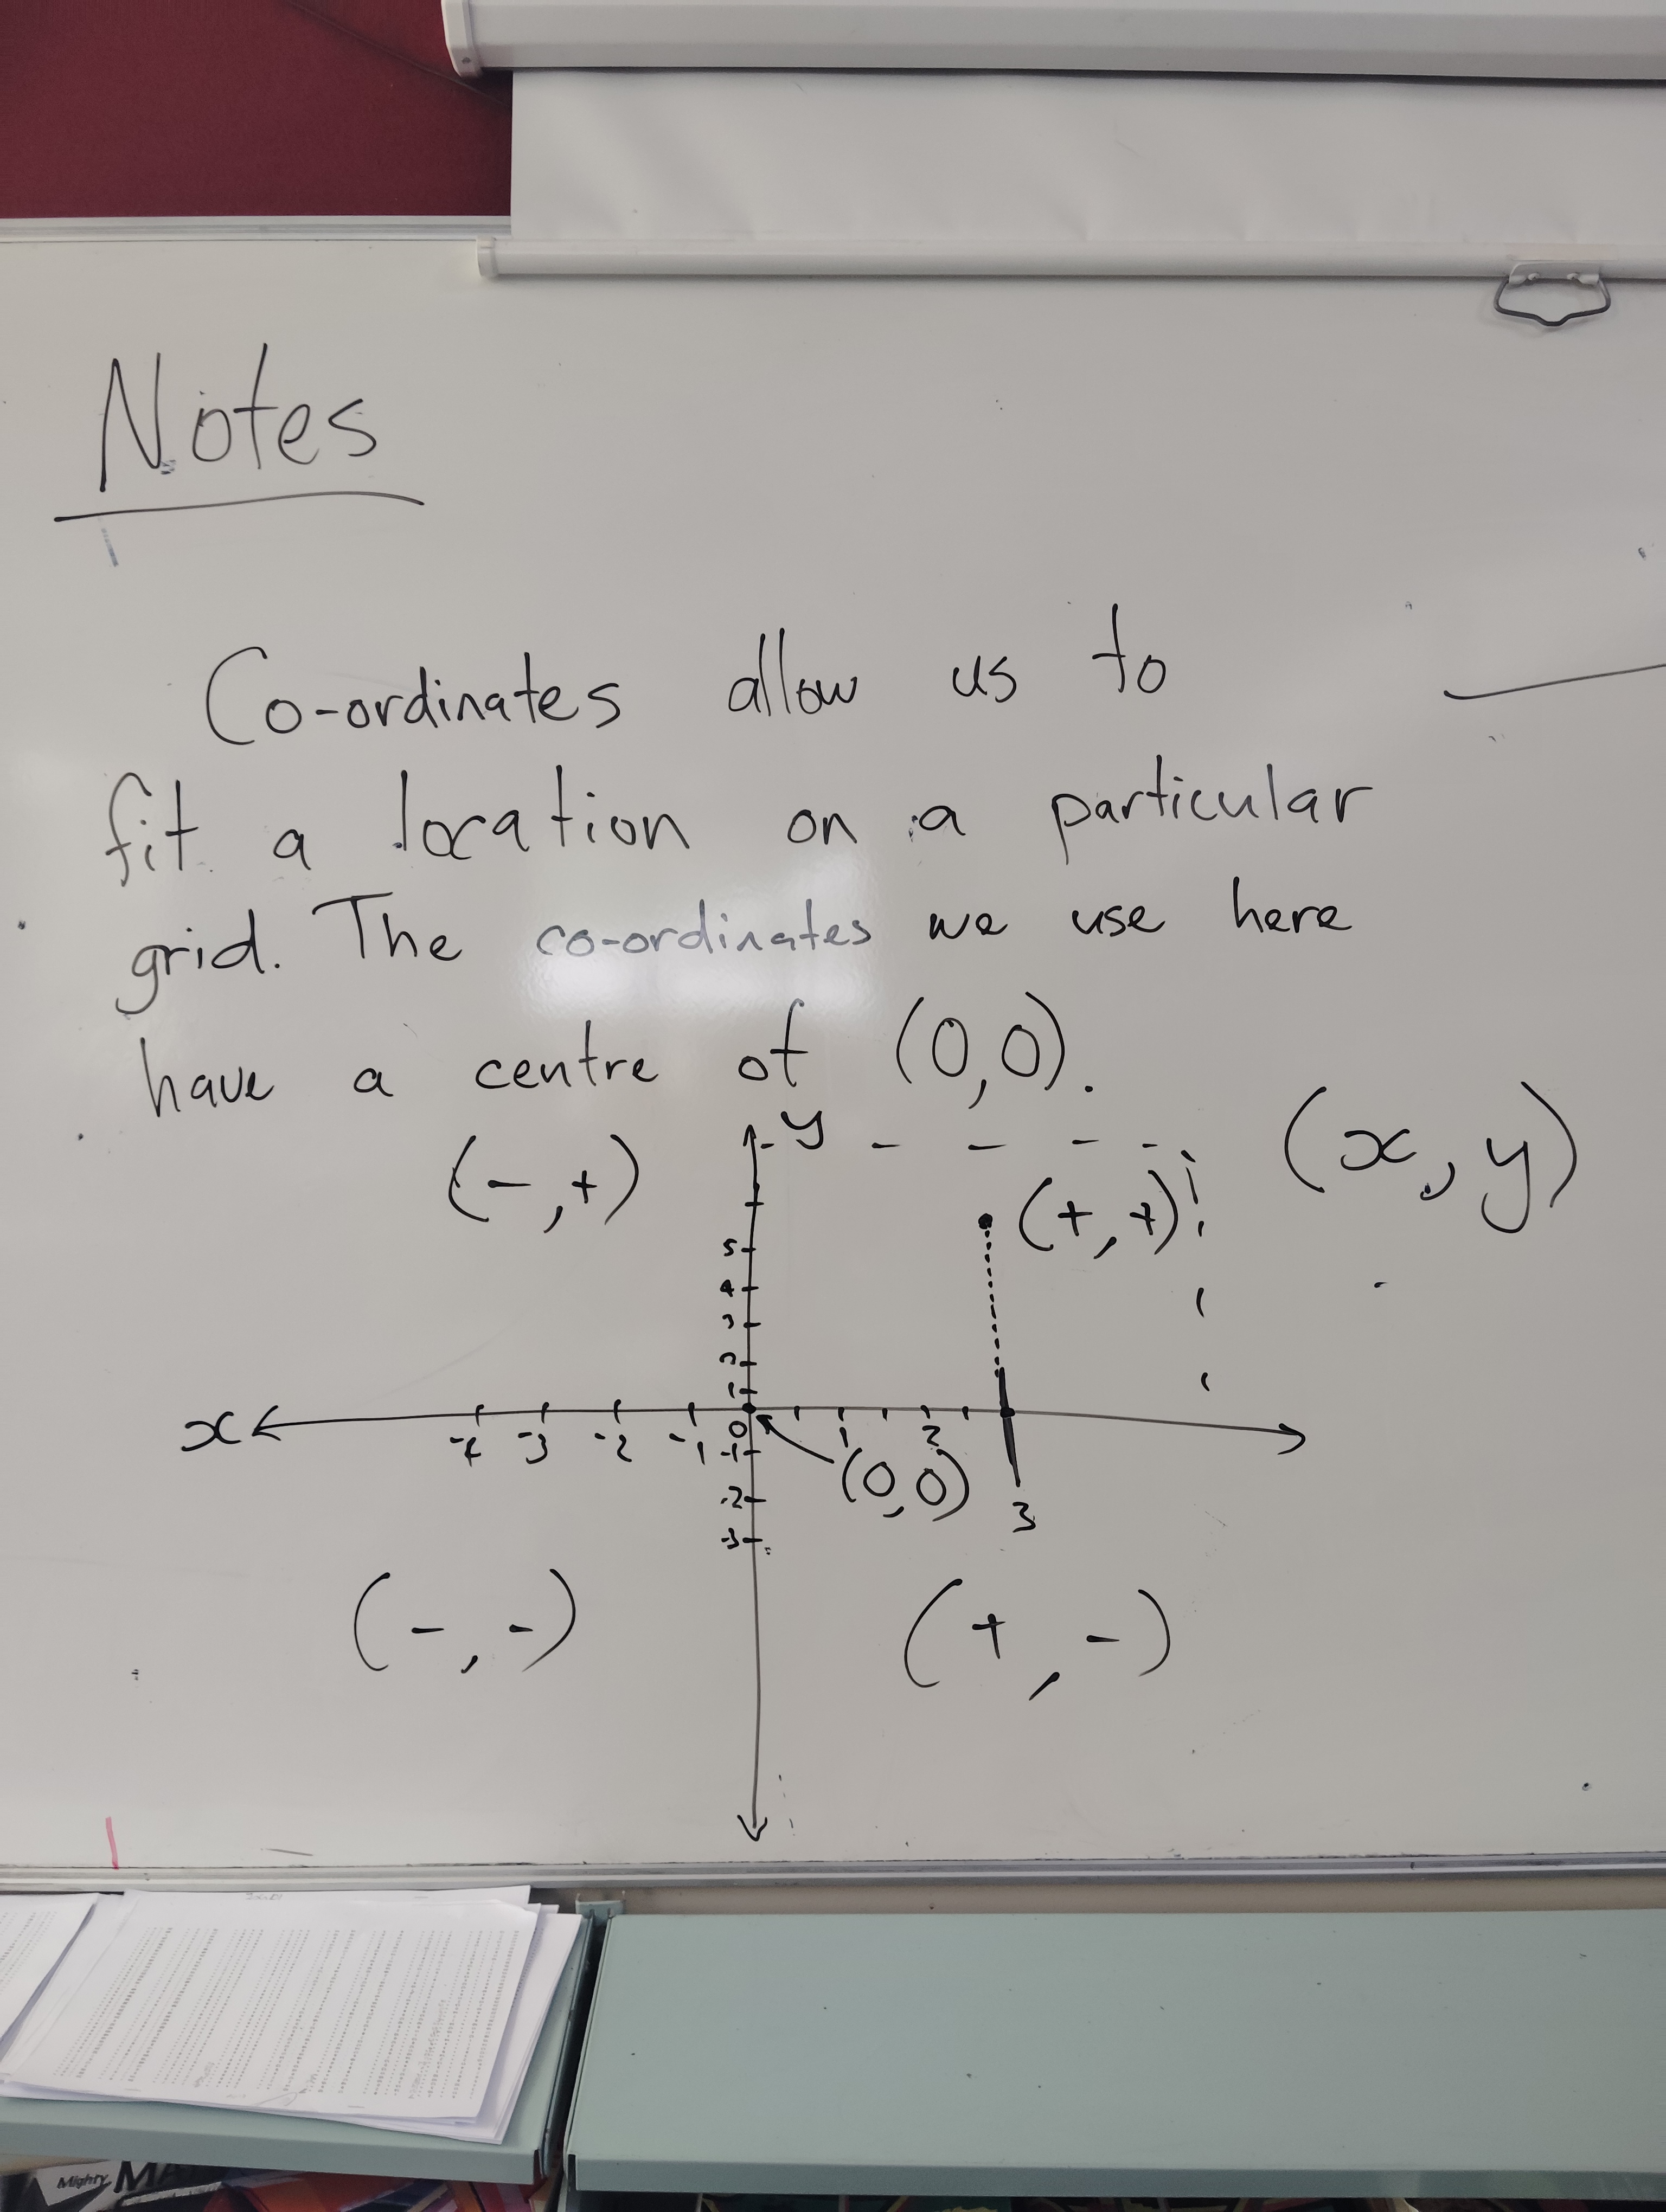 Notes
Co-ordinates allow us to
fit a location on a particular
grid. The co-ordinates we use here
have a centre of (0,0).
y
(x, y)
(-,+)
(+,+)
5
4
3
2
1
x
-4 -3 -2 -1 0 1 2
-1
(0,0)
-2
3
-3
(-,-)
(+,-)
Mighty